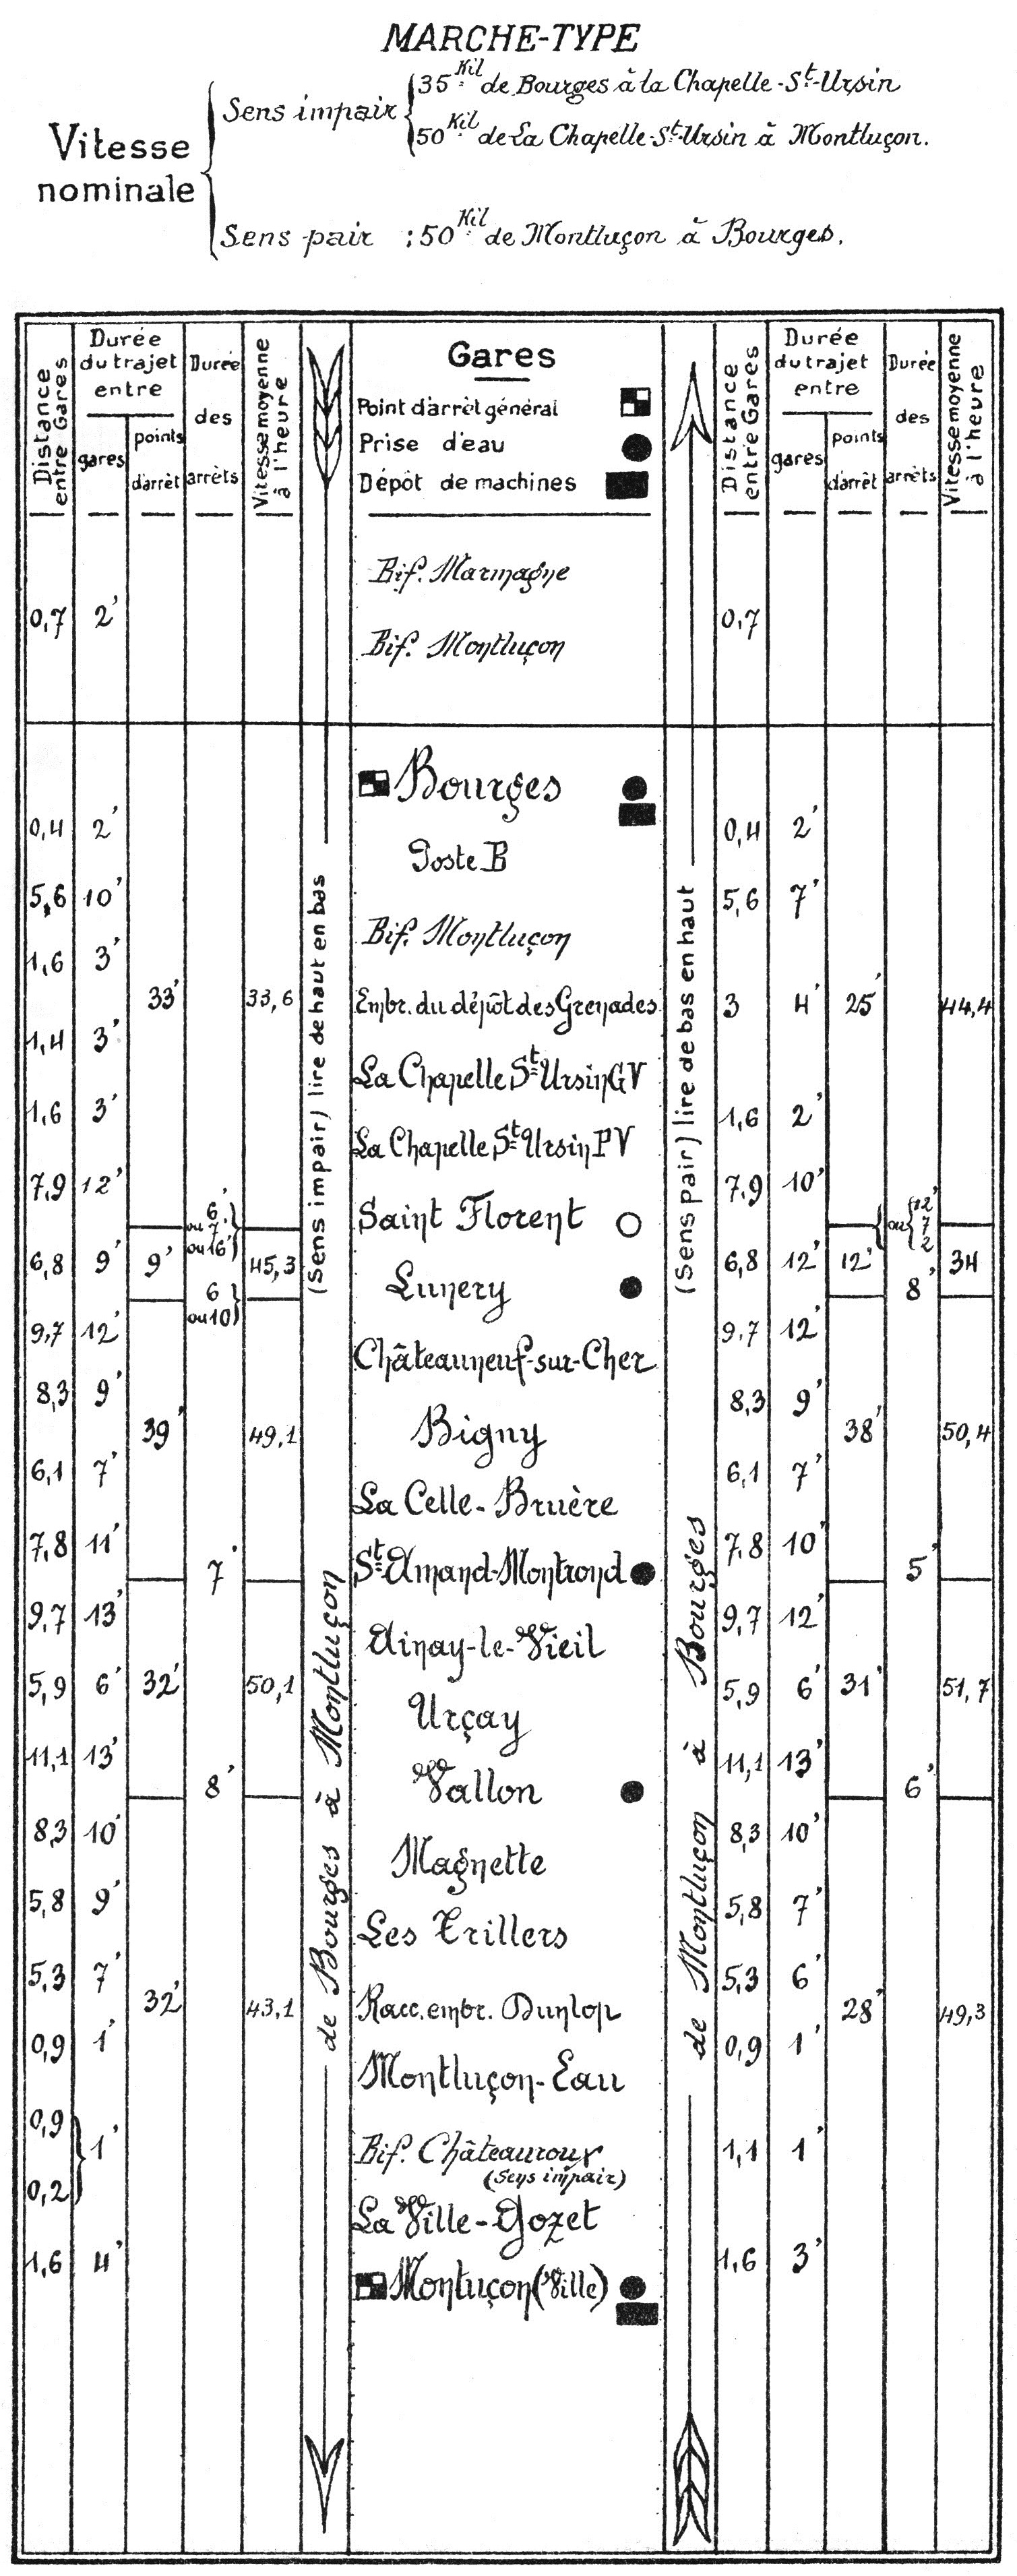 MARCHE-TYPE
Vitesse nominale
Sens impair
35 Kil. de Bourges à la Chapelle-St-Ursin
50 Kil. de La Chapelle-St-Ursin à Montluçon.
Sens pair : 50 Kil. de Montluçon à Bourges.
Distance entre Gares
Durée du trajet entre
gares
points d'arrêt
Durée des arrêts
Vitesse moyenne à l'heure
Gares
Point d'arrêt général
Prise d'eau
Dépôt de machines
Distance entre Gares
Durée du trajet entre
gares
points d'arrêt
Durée des arrêts
Vitesse moyenne à l'heure
Bif. Marmagne
0,7 2' 0,7
Bif. Montluçon
Bourges
0,4 2' 0,4 2'
Poste B
5,6 10' 5,6 7'
Bif. Montluçon
1,6 3'
33' 33,6 Embr. du dépôt des Grenades 3 4' 25' 44,4
1,4 3'
La Chapelle St Ursin GV
1,6 3' 1,6 2'
La Chapelle St Ursin PV
7,9 12' 7,9 10'
6' ou 7' ou 16' Saint Florent ou 12' 7 2
6,8 9' 9' 45,3 6,8 12' 12' 34
6 ou 10 Lunery 8'
9,7 12' 9,7 12'
Châteauneuf-sur-Cher
8,3 9' 8,3 9'
39' 49,1 Bigny 38' 50,4
6,1 7' 6,1 7'
La Celle-Bruère
7,8 11' 7,8 10'
7' St-Amand-Montrond 5'
9,7 13' 9,7 12'
Ainay-le-Vieil
5,9 6' 32' 50,1 5,9 6' 31' 51,7
Urçay
11,1 13' 11,1 13'
8' Vallon 6'
8,3 10' 8,3 10'
Magnette
5,8 9' 5,8 7'
Les Trillers
5,3 7' 5,3 6'
32' 43,1 Racc. embr. Dunlop 28' 49,3
0,9 1' 0,9 1'
Montluçon-Eau
0,9
1' Bif. Châteauroux 1,1 1'
(Sens impair)
0,2
La Ville-Gozet
1,6 4' 1,6 3'
Montuçon (Ville)
(Sens impair) lire de haut en bas
de Bourges à Montluçon
(Sens pair) lire de bas en haut
de Montluçon à Bourges